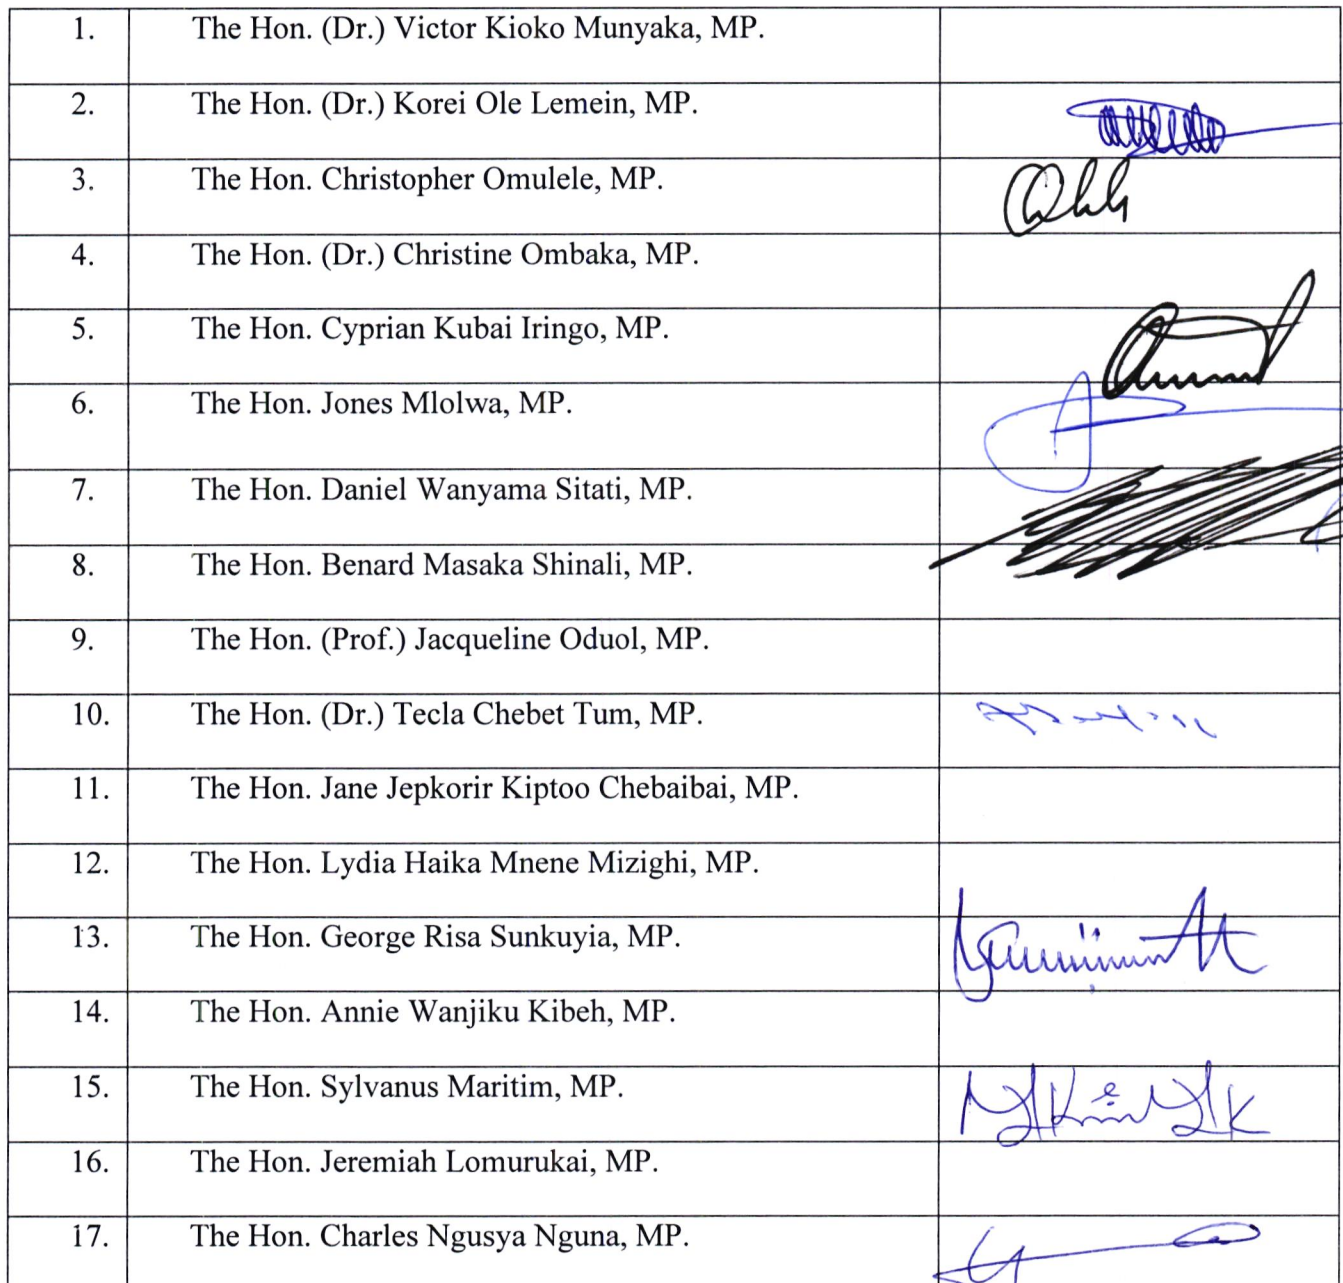 1. The Hon. (Dr.) Victor Kioko Munyaka, MP.
2. The Hon. (Dr.) Korei Ole Lemein, MP.
3. The Hon. Christopher Omulele, MP.
4. The Hon. (Dr.) Christine Ombaka, MP.
5. The Hon. Cyprian Kubai Iringo, MP.
6. The Hon. Jones Mlolwa, MP.
7. The Hon. Daniel Wanyama Sitati, MP.
8. The Hon. Benard Masaka Shinali, MP.
9. The Hon. (Prof.) Jacqueline Oduol, MP.
10. The Hon. (Dr.) Tecla Chebet Tum, MP.
11. The Hon. Jane Jepkorir Kiptoo Chebaibai, MP.
12. The Hon. Lydia Haika Mnene Mizighi, MP.
13. The Hon. George Risa Sunkuyia, MP.
14. The Hon. Annie Wanjiku Kibeh, MP.
15. The Hon. Sylvanus Maritim, MP.
16. The Hon. Jeremiah Lomurukai, MP.
17. The Hon. Charles Ngusya Nguna, MP.